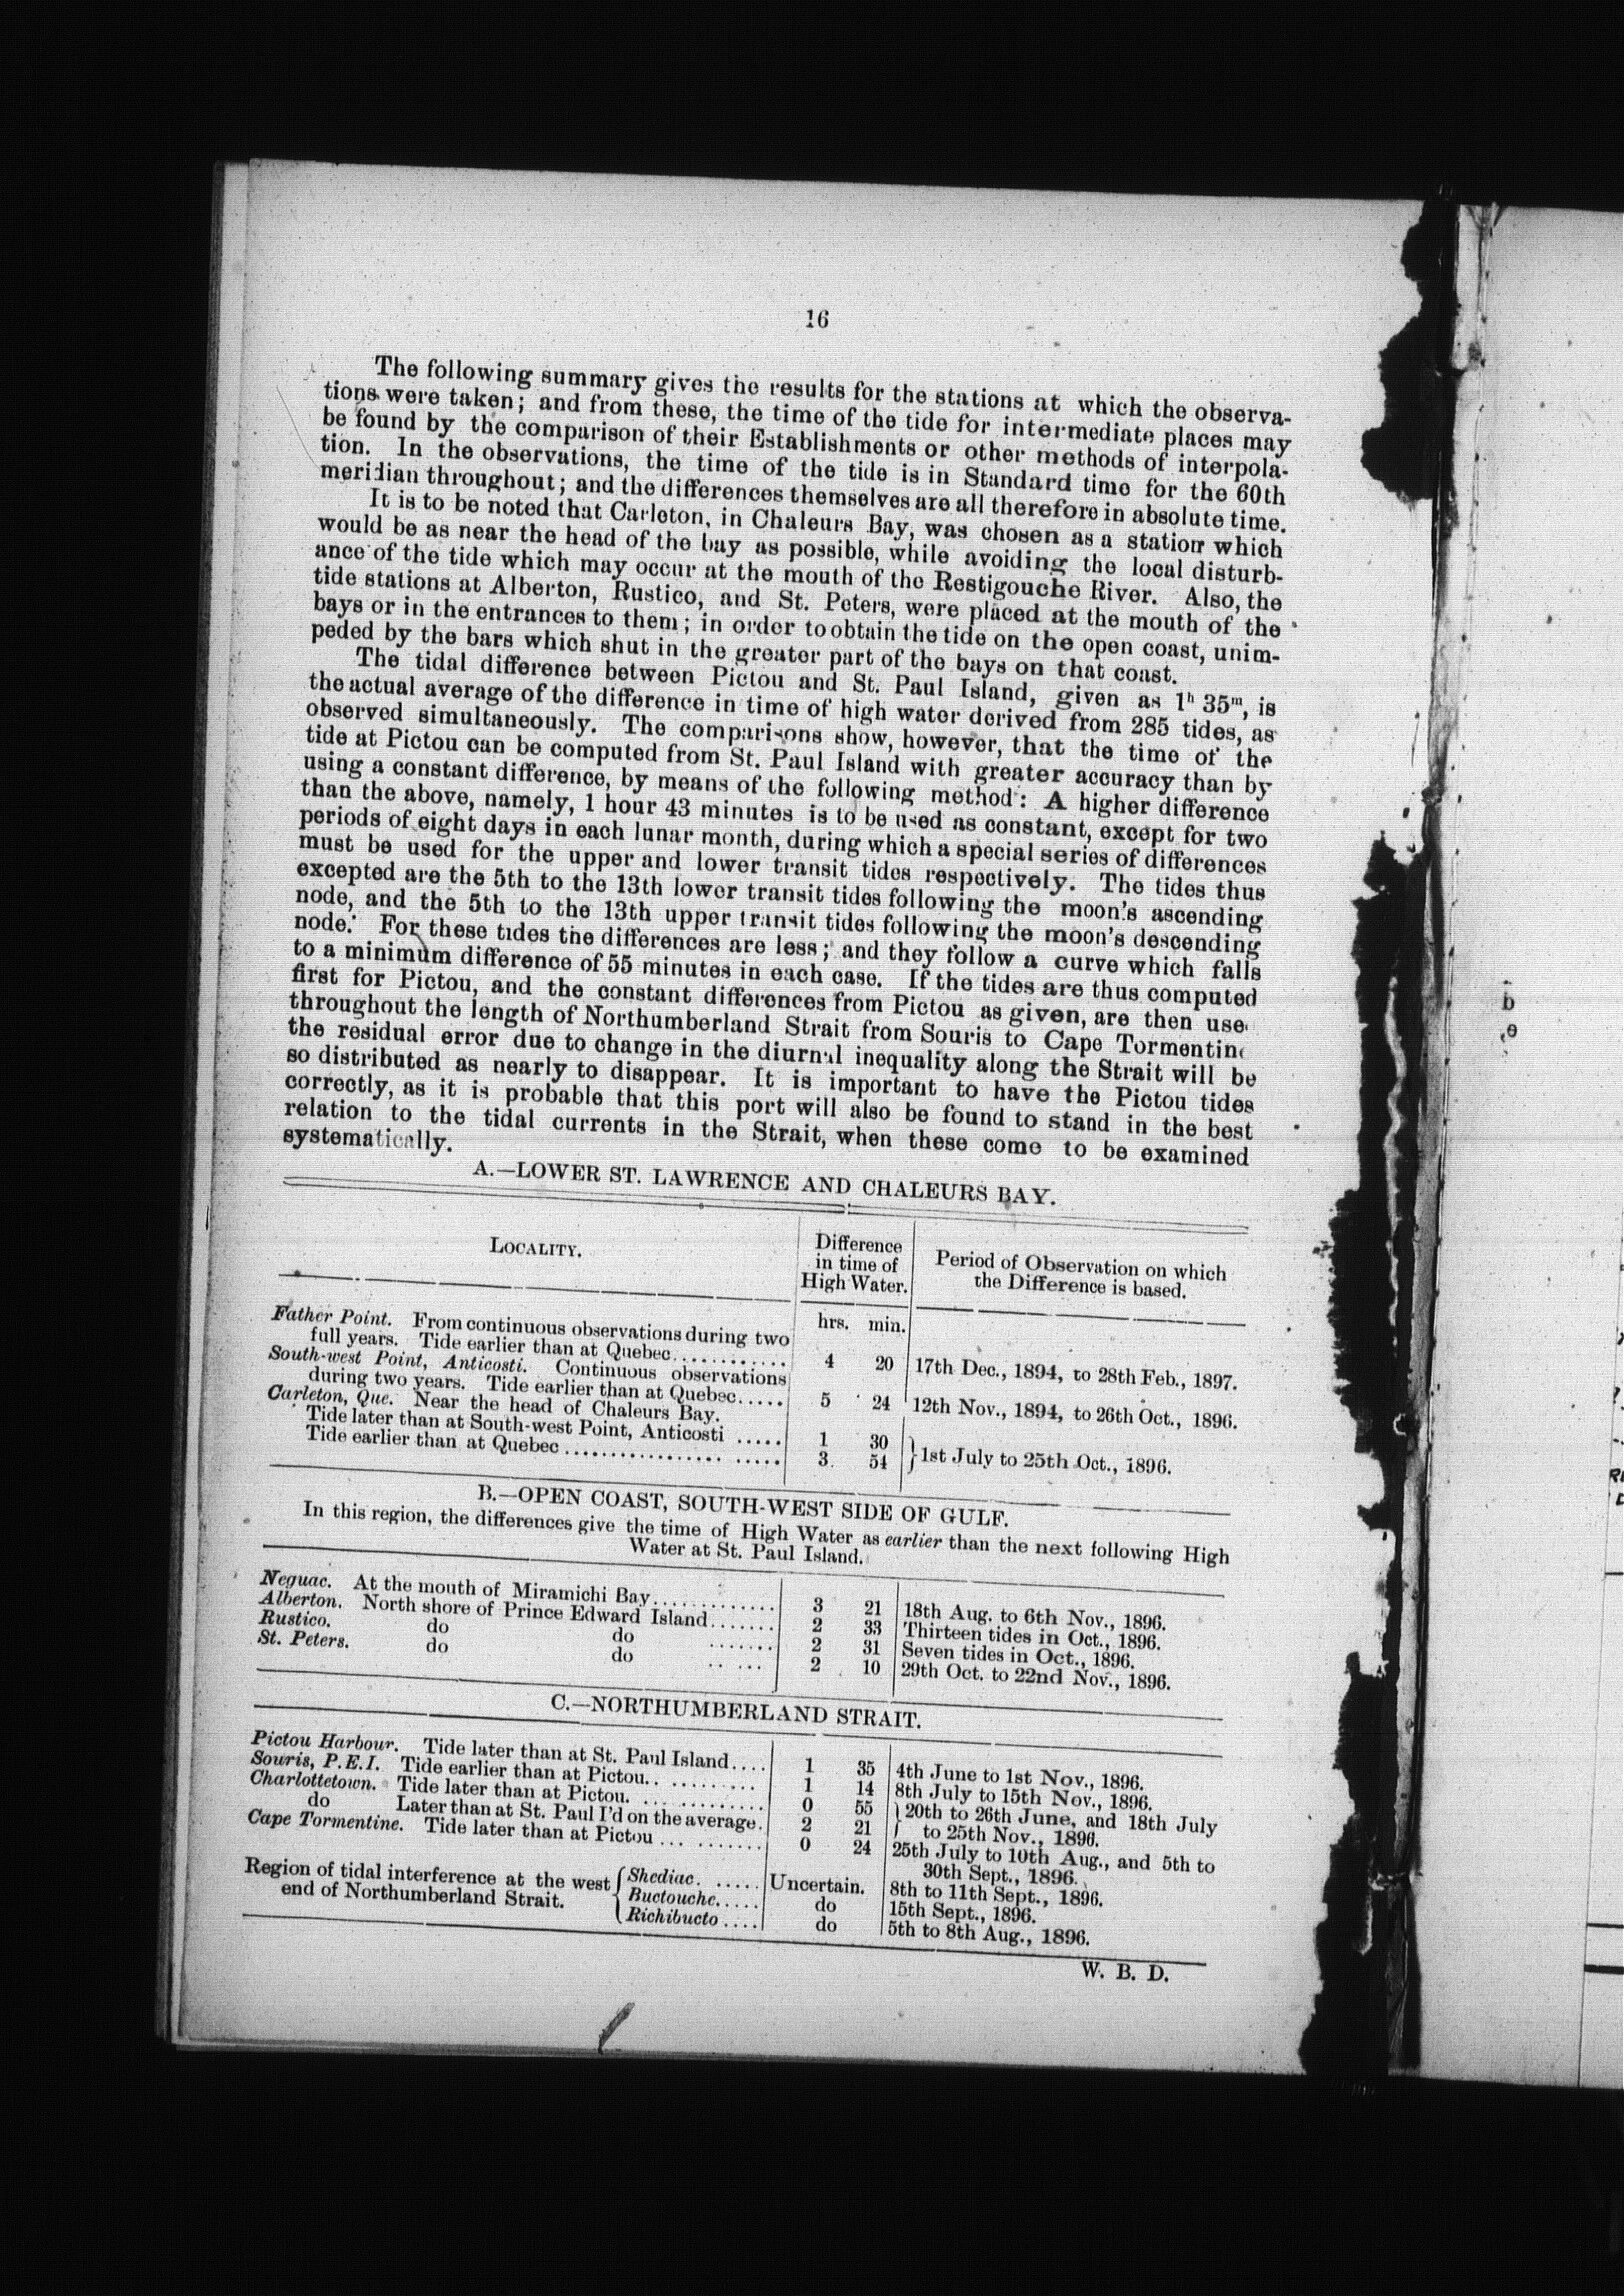 16
The following summary gives the results for the stations at which the observa-
tions were taken; and from these, the time of the tide for intermediate places may
be found by the comparison of their Establishments or other methods of interpola-
tion. In the observations, the time of the tide is in Standard time for the 60th
meridian throughout; and the differences themselves are all therefore in absolute time.
It is to be noted that Carleton, in Chaleurs Bay, was chosen as a station which
would be as near the head of the bay as possible, while avoiding the local disturb-
ance of the tide which may occur at the mouth of the Restigouche River. Also, the
tide stations at Alberton, Rustico, and St. Peters, were placed at the mouth of the
bays or in the entrances to them; in order to obtain the tide on the open coast, unim-
peded by the bars which shut in the greater part of the bays on that coast.
The tidal difference between Pictou and St. Paul Island, given as 1h 35m, is
the actual average of the difference in time of high water derived from 285 tides, as
observed simultaneously. The comparisons show, however, that the time of the
tide at Pictou can be computed from St. Paul Island with greater accuracy than by
using a constant difference, by means of the following method: A higher difference
than the above, namely, 1 hour 43 minutes is to be used as constant, except for two
periods of eight days in each lunar month, during which a special series of differences
must be used for the upper and lower transit tides respectively. The tides thus
excepted are the 5th to the 13th lower transit tides following the moon's ascending
node, and the 5th to the 13th upper transit tides following the moon's descending
node. For these tides the differences are less; and they follow a curve which falls
to a minimum difference of 55 minutes in each case. If the tides are thus computed
first for Pictou, and the constant differences from Pictou as given, are then use
throughout the length of Northumberland Strait from Souris to Cape Tormentin
the residual error due to change in the diurnal inequality along the Strait will be
so distributed as nearly to disappear. It is important to have the Pictou tides
correctly, as it is probable that this port will also be found to stand in the best
relation to the tidal currents in the Strait, when these come to be examined
systematically.
A.—LOWER ST. LAWRENCE AND CHALEURS BAY.
LOCALITY. Difference in time of High Water. Period of Observation on which the Difference is based.
hrs. min.
Father Point. From continuous observations during two
full years. Tide earlier than at Quebec............ 4 20 17th Dec., 1894, to 28th Feb., 1897.
South-west Point, Anticosti. Continuous observations
during two years. Tide earlier than at Quebec..... 5 24 12th Nov., 1894, to 26th Oct., 1896.
Carleton, Que. Near the head of Chaleurs Bay.
Tide later than at South-west Point, Anticosti ..... 1 30 } 1st July to 25th Oct., 1896.
Tide earlier than at Quebec ...................... 3 54
B.—OPEN COAST, SOUTH-WEST SIDE OF GULF.
In this region, the differences give the time of High Water as earlier than the next following High
Water at St. Paul Island.
Neguac. At the mouth of Miramichi Bay............. 3 21 18th Aug. to 6th Nov., 1896.
Alberton. North shore of Prince Edward Island....... 2 33 Thirteen tides in Oct., 1896.
Rustico. do do ....... 2 31 Seven tides in Oct., 1896.
St. Peters. do do ..... 2 10 29th Oct. to 22nd Nov., 1896.
C.—NORTHUMBERLAND STRAIT.
Pictou Harbour. Tide later than at St. Paul Island.... 1 35 4th June to 1st Nov., 1896.
Souris, P.E.I. Tide earlier than at Pictou........... 1 14 8th July to 15th Nov., 1896.
Charlottetown. Tide later than at Pictou............. 0 55 } 20th to 26th June, and 18th July
do Later than at St. Paul I'd on the average. 2 21 to 25th Nov., 1896.
Cape Tormentine. Tide later than at Pictou .......... 0 24 25th July to 10th Aug., and 5th to
30th Sept., 1896.
Region of tidal interference at the west { Shediac...... Uncertain. 8th to 11th Sept., 1896.
end of Northumberland Strait. Buctouche..... do 15th Sept., 1896.
Richibucto .... do 5th to 8th Aug., 1896.
W. B. D.